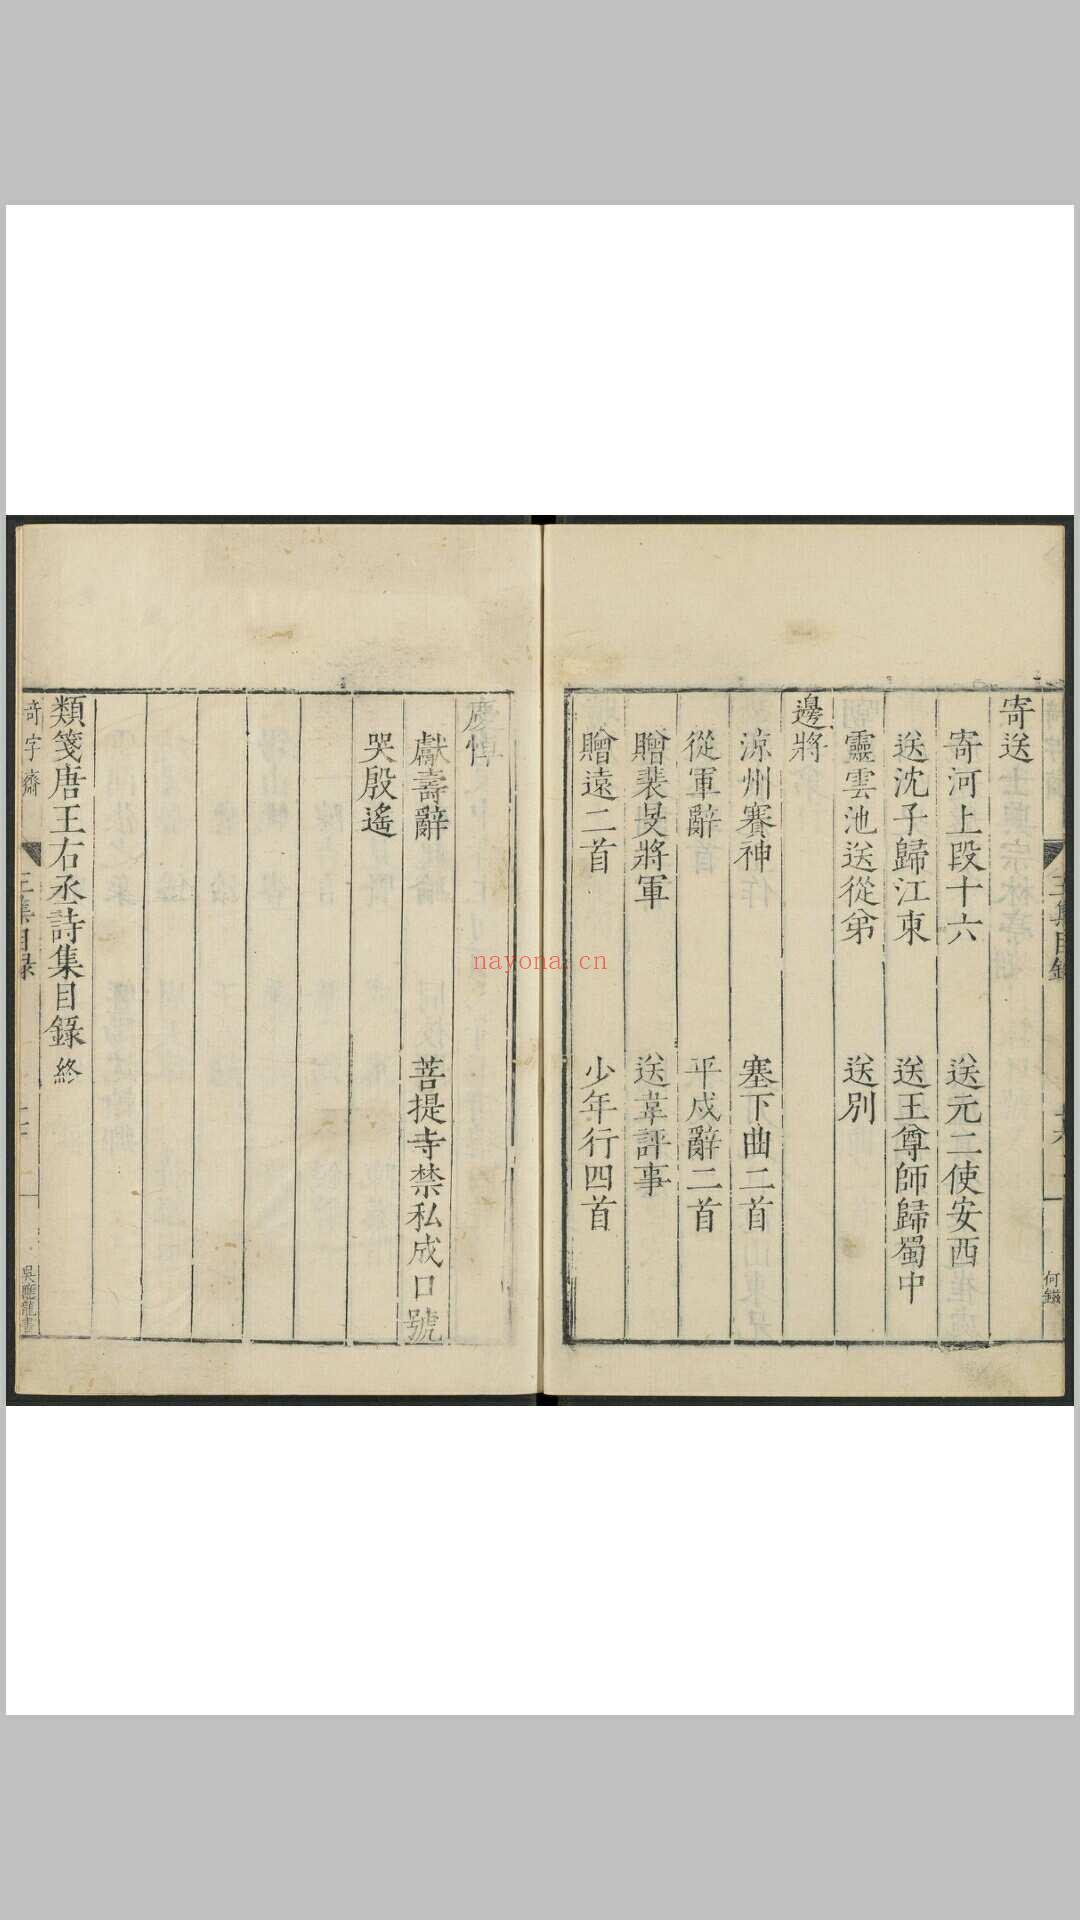 寄送
寄河上段十六
送元二使安西
送沈子歸江東
送王尊師歸蜀中
靈雲池送從弟
送別
邊將
涼州賽神
塞下曲二首
從軍辭
平戍辭二首
贈裴旻將軍
送韋評事
贈遠二首
少年行四首
慶悼
獻壽辭
菩提寺禁私成口號
哭殷遙
類箋唐王右丞詩集目錄 終
奇字齋
王集目錄
吳應龍書
王集目錄
何鎡
nayona.cn